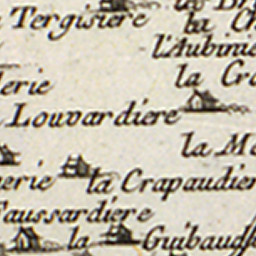 Tergisiere
la Ch
l'Aubinie
la Cro
lerie
Louvardiere
la Me
erie
la Crapaudier
aussardiere
la
Guibaud